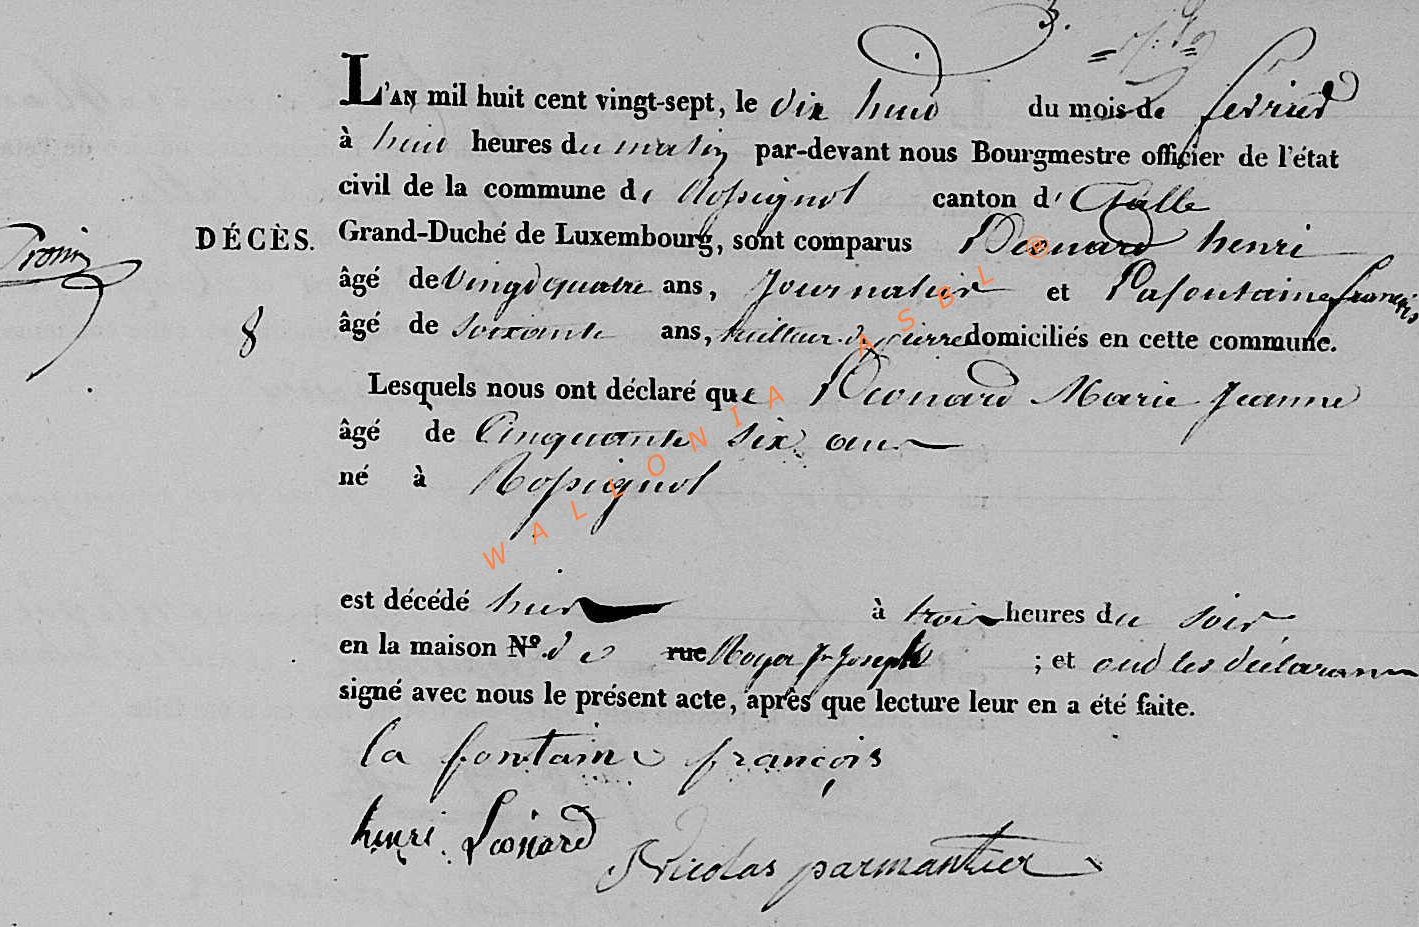 3.
L'AN mil huit cent vingt-sept, le dix huit du mois de fevrier
à huit heures du matin par-devant nous Bourgmestre officier de l'état
civil de la commune de Rossignol canton d'Etalle
DÉCÈS. Grand-Duché de Luxembourg, sont comparus Léonard henri
âgé de vingt quatre ans, Journalier et Lafontaine françois
8 âgé de soixante ans, tailleur de pierre domiciliés en cette commune.
Lesquels nous ont déclaré que Léonard Marie Jeanne
âgé de Cinquante six ans
né à Rossignol
est décédé hier à trois heures du soir,
en la maison N.º de rue Joseph ; et ont les déclarans
signé avec nous le présent acte, après que lecture leur en a été faite.
la fontaine françois
henri Leonard
Nicolas parmantier
WALLONIA ASBL ©